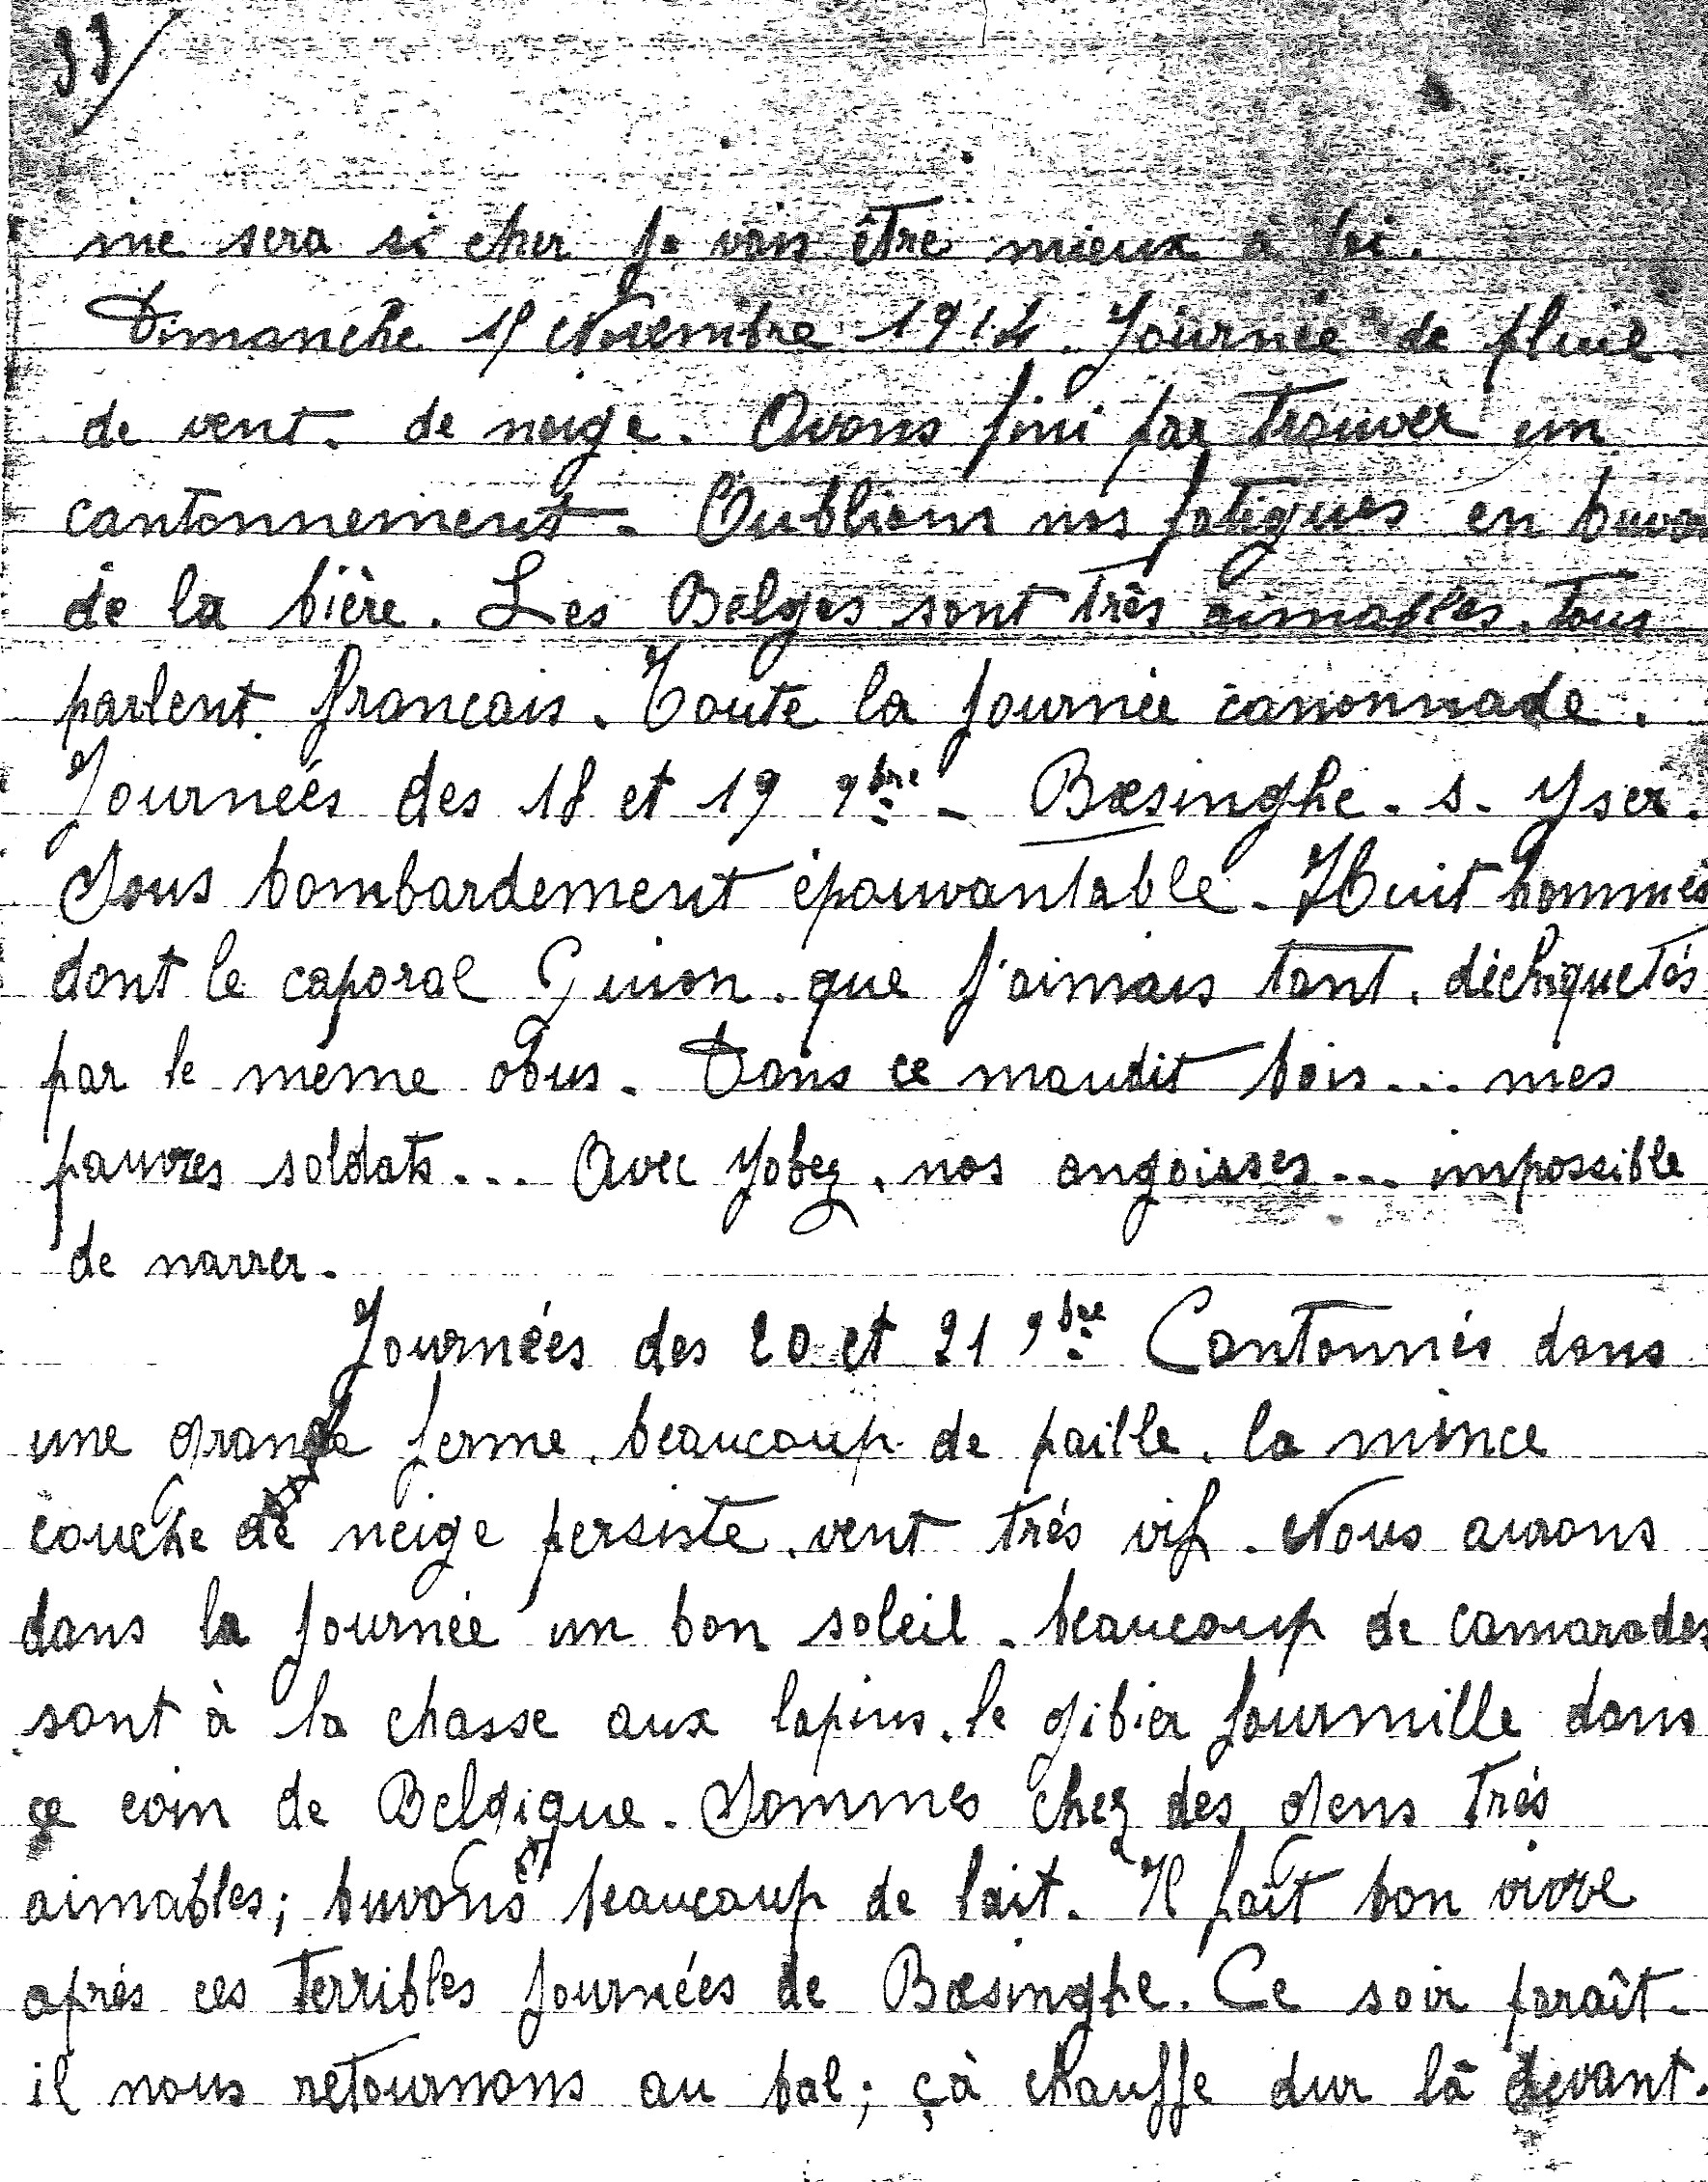 33/
me sera si cher je vais être mieux à toi.
Dimanche 15 Novembre 1914. Journée de pluie.
de vent. de neige. Avons fini par trouver un
cantonnement. Oublions nos fatigues en buvan
de la bière. Les Belges sont très aimables, tous
parlent francais. Toute la journée canonnade.
Journées des 18 et 19 9bre - Bœsinghe. s. Yser.
Sous bombardement épouvantable. Huit hommes
dont le caporal Guion. que j'aimais tant, déchiquetés
par le même obus. Dans ce maudit bois... mes
pauvres soldats... Avec Yobez, nos angoisses... impossible
de narrer.
Journées des 20 et 21 9bre Cantonnés dans
une grande ferme, beaucoup de paille, la mince
couche de neige persiste, vent très vif. Nous avons
dans la journée un bon soleil. beaucoup de camarades
sont à la chasse aux lapins, le gibier fourmille dans
ce coin de Belgique. Sommes chez des gens très
aimables; buvons beaucoup de lait. Il fait bon vivre
après ces terribles journées de Bœsinghe. Ce soir paraît-
il nous retournons au bal; çà chauffe dur là devant.